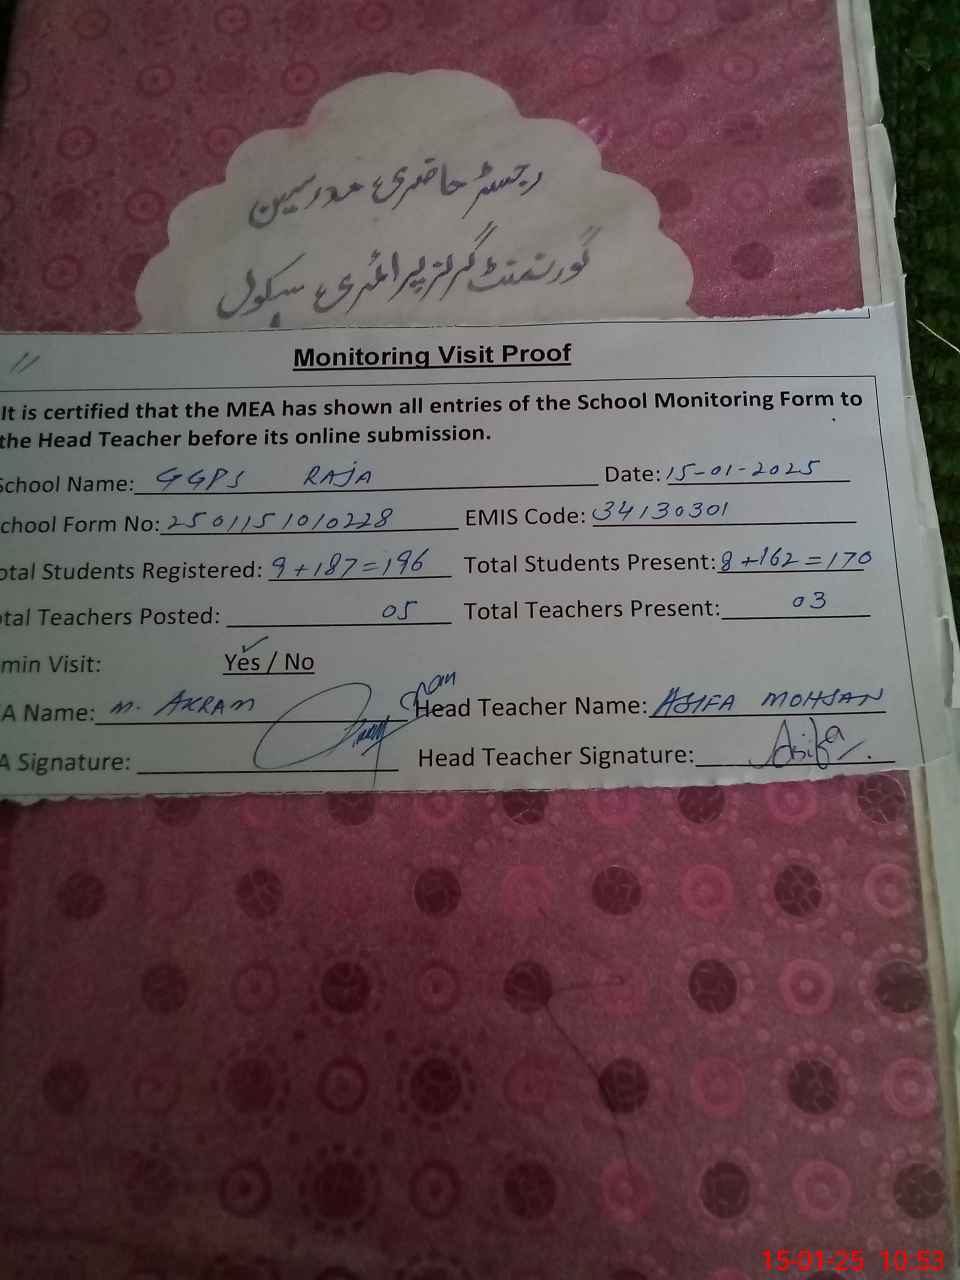 رجسٹر حاضری مدرسین
گورنمنٹ گرلز پرائمری سکول
Monitoring Visit Proof
It is certified that the MEA has shown all entries of the School Monitoring Form to
the Head Teacher before its online submission.
School Name: GGPS RAJA Date: 15-01-2025
chool Form No: 2501151010228 EMIS Code: 34130301
otal Students Registered: 9+187=196 Total Students Present: 8+162=170
tal Teachers Posted: 05 Total Teachers Present: 03
min Visit: Yes / No
A Name: M. AKRAM Head Teacher Name: ASIFA MOHSAN
A Signature: Head Teacher Signature: Asifa
15-01-25 10:53